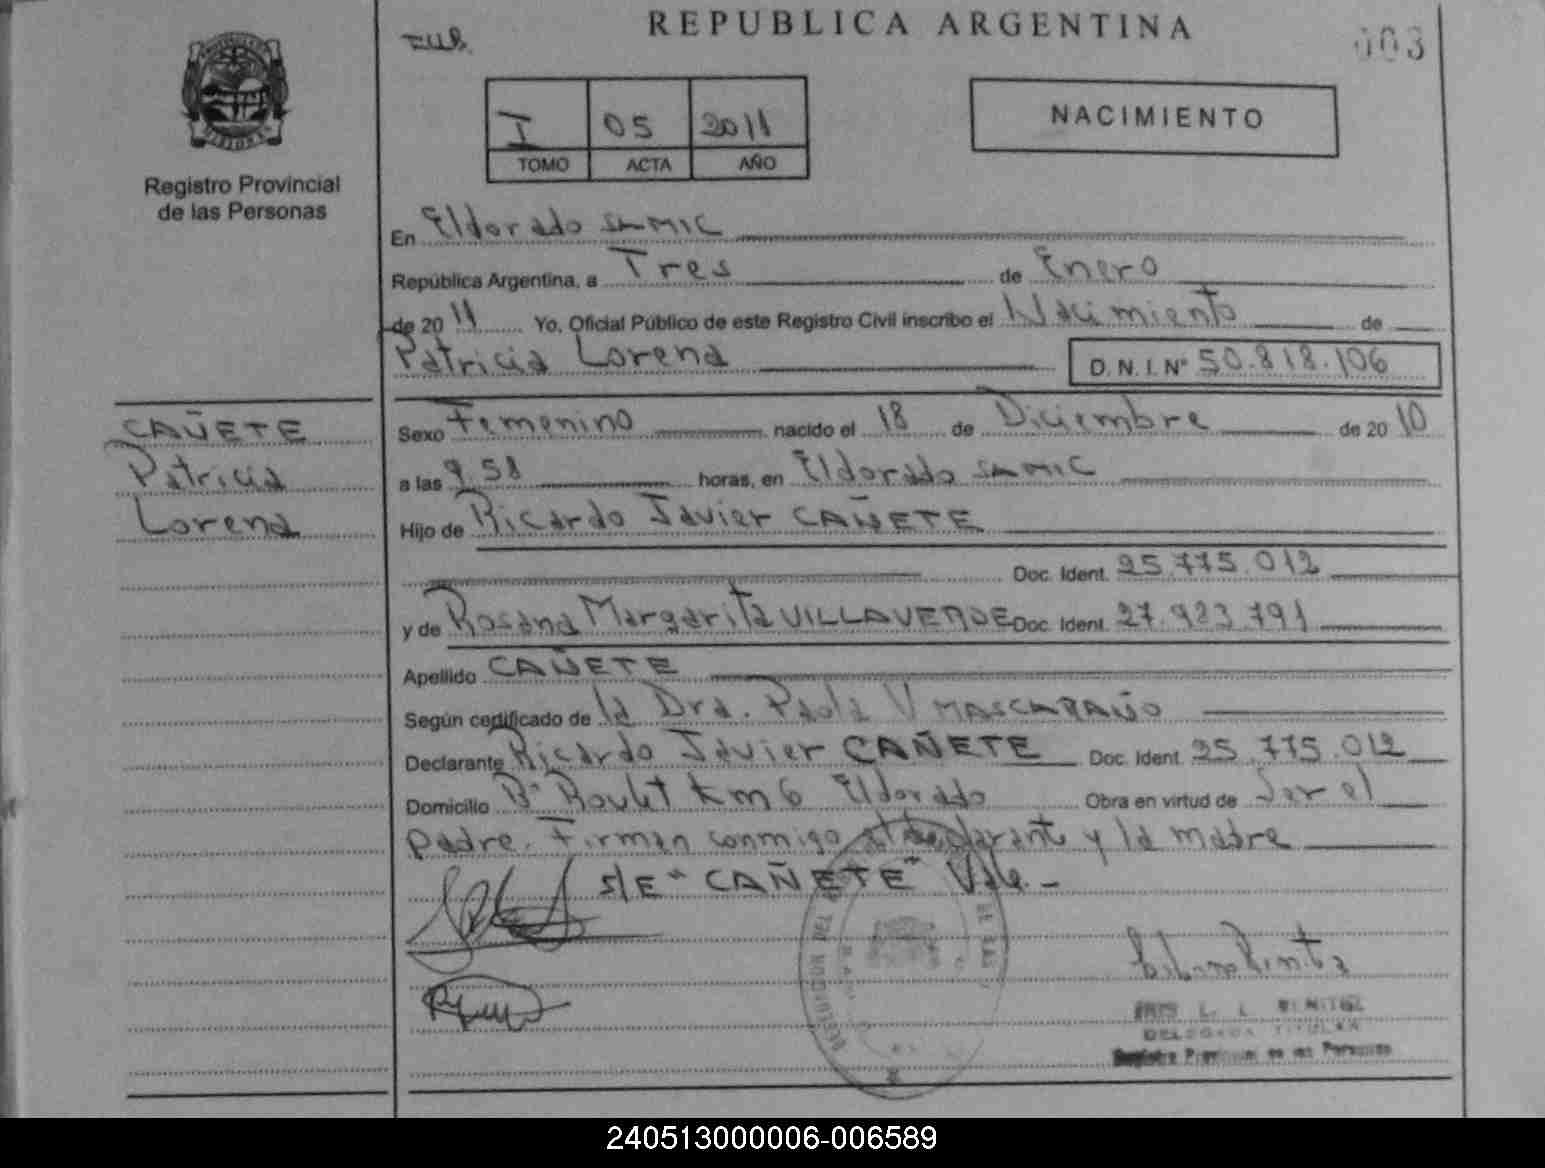 REPUBLICA ARGENTINA
003
I 05 2011
TOMO ACTA AÑO
NACIMIENTO
Registro Provincial
de las Personas
En Eldorado SAMIC
República Argentina, a Tres de Enero
de 2011 Yo, Oficial Público de este Registro Civil inscribo el Nacimiento de
Patricia Lorena D.N.I.Nº 50.818.106
CAÑETE
Patricia
Lorena
Sexo Femenino nacido el 18 de Diciembre de 2010
a las 9 58 horas, en Eldorado SAMIC
Hijo de Ricardo Javier CAÑETE
Doc. Ident. 25.775.012
y de Rosana Margarita VILLAVERDE Doc. Ident. 27.923.791
Apellido CAÑETE
Según certificado de la Dra. Paola V MASCARAÑO
Declarante Ricardo Javier CAÑETE Doc. Ident. 25.775.012
Domicilio Bº Roulet Km 6 Eldorado Obra en virtud de Ser el
padre. Firman conmigo el declarante y la madre
S/E "CAÑETE" Vale.-
L. BENITEZ
DELEGADA TITULAR
Registro Provincial de las Personas
240513000006-006589